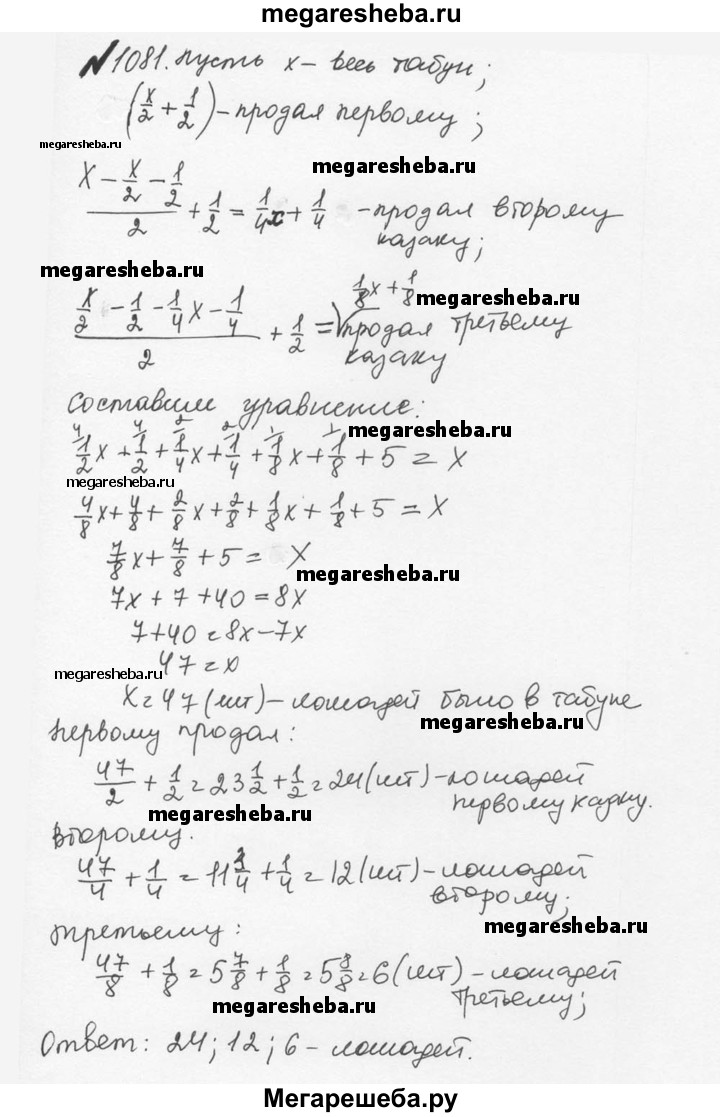 megaresheba.ru
№1081. Пусть x – весь табун;
(x/2 + 1/2) – продал первому;
megaresheba.ru
megaresheba.ru
(x – x/2 – 1/2)/2 + 1/2 = 1/4x + 1/4 – продал второму
казаку;
megaresheba.ru
1/8x + 1/8
megaresheba.ru
(x/2 – 1/2 – 1/4x – 1/4)/2 + 1/2 = продал третьему
казаку
Составим уравнение:
megaresheba.ru
1/2x + 1/2 + 1/4x + 1/4 + 1/8x + 1/8 + 5 = x
megaresheba.ru
4/8x + 4/8 + 2/8x + 2/8 + 1/8x + 1/8 + 5 = x
7/8x + 7/8 + 5 = x
megaresheba.ru
7x + 7 + 40 = 8x
7 + 40 = 8x – 7x
47 = x
megaresheba.ru
x = 47 (шт) – лошадей было в табуне
megaresheba.ru
первому продал:
47/2 + 1/2 = 23 1/2 + 1/2 = 24 (шт) – лошадей
первому казаку.
megaresheba.ru
Второму.
47/4 + 1/4 = 11 3/4 + 1/4 = 12 (шт) – лошадей
второму;
megaresheba.ru
третьему:
47/8 + 1/8 = 5 7/8 + 1/8 = 5 8/8 = 6 (шт) – лошадей
третьему;
megaresheba.ru
Ответ: 24; 12; 6 – лошадей.
Мегарешеба.ру